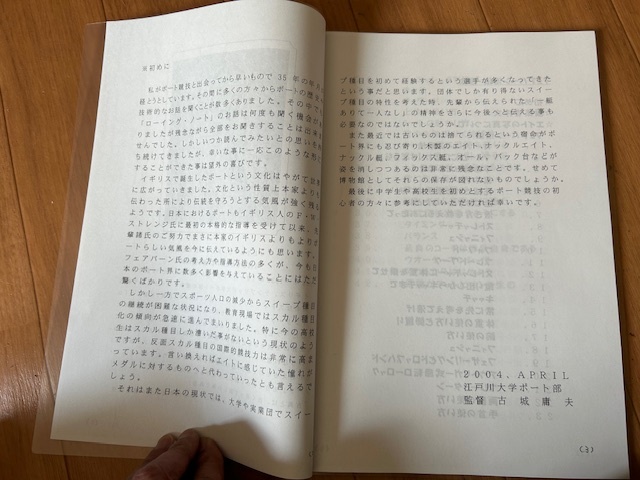 ※初めに
私がボート競技と出会ってから早いもので 35 年の年月が
経とうとしています。その間に多くの方々からボートの歴史や
技術的なお話を聞くことが数多くありました。その中で
「ローイング・ノート」のお話は何度も聞く機会があ
りましたが残念ながら全部をお聞きすることは出来ま
せんでした。しかしいつか読んでみたいとの思いを持
ち続けてきましたが、幸いな事に一応このような形に
することができた事は望外の喜びです。
イギリスで誕生したボートという文化はやがて世界
に広がっていきました。文化という性質上本家よりも
伝わった所により伝統を守ろうとする気風が強く残る
ようです。日本におけるボートもイギリス人のF・W・
ストレンジ氏に最初の本格的な指導を受けて以来、先
輩諸氏のご努力でまさに本家のイギリスよりもよりボ
ートらしい気風を今に伝えているようにも思います。
フェアバーン氏の考え方や指導方法の多くが、今も日
本のボート界に数多く影響を与えていることにはただ
驚くばかりです。
しかし一方でスポーツ人口の減少からスイープ種目
の継続が困難な状況になり、教育現場ではスカル種目
化の傾向が急速に進んでまいりました。特に今の高校
生はスカル種目しか漕いだ事がないという現状のよう
ですが、反面スカル種目の国際的競技力は非常に高ま
っています。言い換えればエイトに感じていた憧れが
メダルに対するものへと代わっていったとも言えるで
しょう。
それはまた日本の現状では、大学や実業団でスイー
プ種目を初めて経験するという選手が多くなってきた
という事だと思います。団体でしか有り得ないスイー
プ種目の特性を考えた時、先輩から伝えられた「一艇
ありて一人なし」の精神をさらに今後へと伝える事も
必要なのではないでしょうか。
また最近では古いものは捨てられるという宿命がボ
ート界にも忍び寄り、木製のエイト、ナックルエイト、
ナックル艇、フィックス艇、オール、バック台などが
姿を消しつつあるのは非常に残念なことです。せめて
博物館としてそれらの保存が図れないものでしょうか。
最後に中学生や高校生を初めとするボート競技の初
心者の方々に参考にしていただければ幸いです。
2004. APRIL
江戸川大学ボート部
監督 古 城 庸 夫
(3)